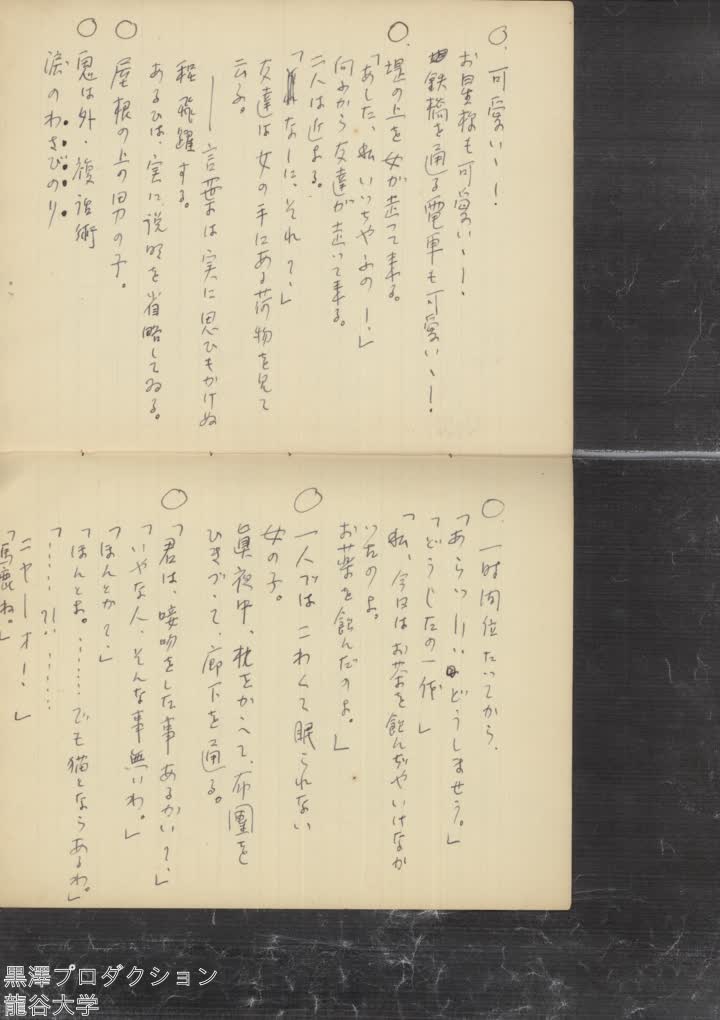 ○. 可愛いー!
お星様も可愛いー!
鉄橋を通る電車も可愛いー!
○. 堤の上を女が走って来る。
「あした、私いっちやふのー!」
向ふから友達が走いて来る。
二人は近よる。
「なーに、それ?」
友達は女の手にある荷物を見て
云ふ。
――言葉は実に思ひもかけぬ
程飛躍する。
あるひは、実に説明を省略してゐる。
○ 屋根の上の男の子。
○ 鬼は外・腹話術
涙のわさびのり
○. 一時間位たってから、
「あらッ!! どうしませう。」
「どうしたの一体」
「私、今日はお茶を飲んぢやいけなか
いたのよ。
お茶を飲んだのよ。」
○ 一人ではこわくて眠られない
女の子。
眞夜中、枕をかゝへて、布團を
ひきづって、廊下を通る。
○ 「君は、接吻をした事あるかい?」
「いやな人、そんな事無いわ。」
「ほんとかて」
「ほんとよ。……でも猫とならあるわ。」
「……?!……
ニヤーオー!」
「馬鹿ね。」
黒澤プロダクション
龍谷大学